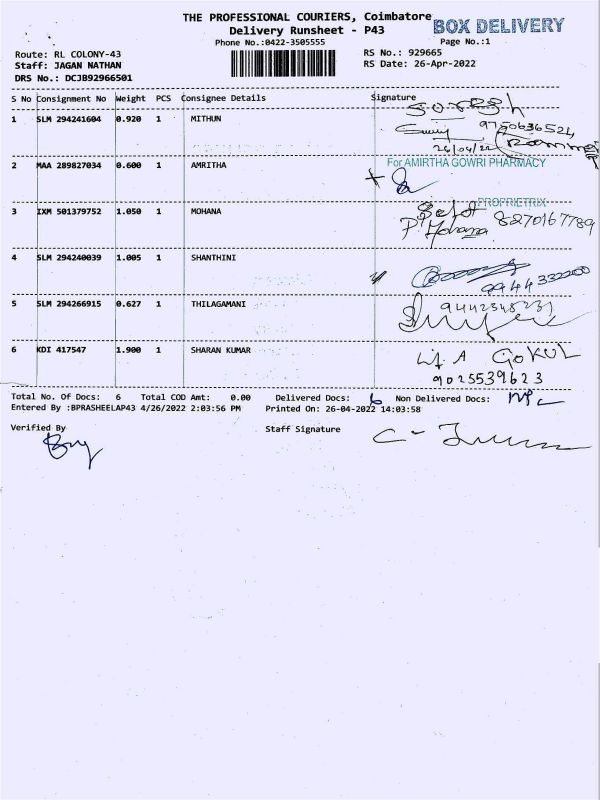 THE PROFESSIONAL COURIERS, Coimbatore
BOX DELIVERY
Delivery Runsheet - P43
Phone No.:0422-3505555
Page No.:1
Route: RL COLONY-43
RS No.: 929665
Staff: JAGAN NATHAN
RS Date: 26-Apr-2022
DRS No.: DCJB92966501
S No Consignment No Weight PCS Consignee Details Signature
1 SLM 294241604 0.920 1 MITHUN
Suresh
9750636524
26/04/22
2 MAA 289827034 0.600 1 AMRITHA
For AMIRTHA GOWRI PHARMACY
PROPRIETRIX
3 IXM 501379752 1.050 1 MOHANA
Self
P. Mohana 8270167789
4 SLM 294240039 1.005 1 SHANTHINI
9944332200
5 SLM 294266915 0.627 1 THILAGAMANI
6 KDI 417547 1.900 1 SHARAN KUMAR
GOKUL
9025539623
Total No. Of Docs: 6 Total COD Amt: 0.00 Delivered Docs: 6 Non Delivered Docs: NIL
Entered By :BPRASHEELAP43 4/26/2022 2:03:56 PM Printed On: 26-04-2022 14:03:58
Verified By Staff Signature